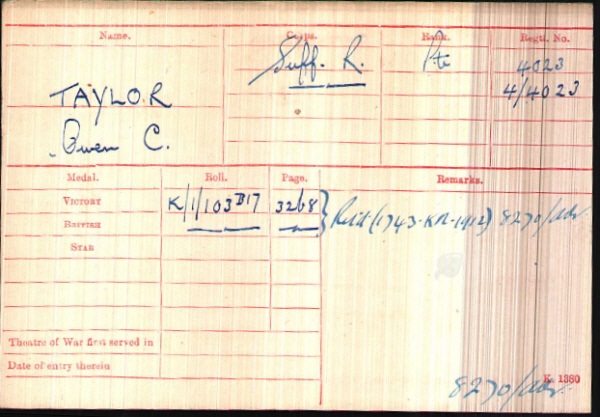 Name. Corps. Rank. Regtl. No.
Suff. R. Pte 4023
TAYLOR 4/4023
Owen C.
Medal. Roll. Page. Remarks.
VICTORY K/1/103 B17 3268
BRITISH Retd (1743-KR-1912) 8270/Adv.
STAR
Theatre of War first served in
Date of entry therein
K. 1380
8270/Adv.